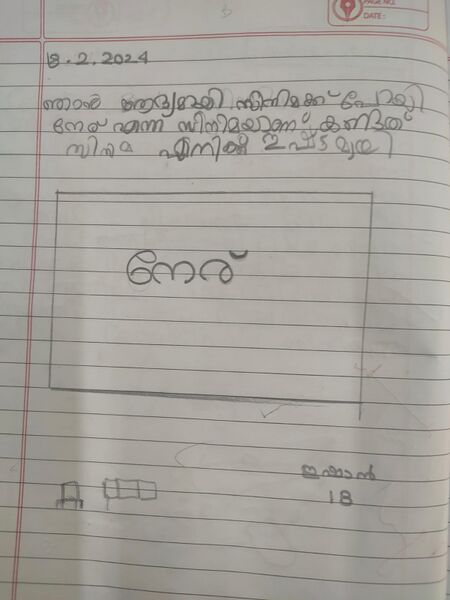 PAGE NO.
DATE:
8.2.2024
ഞാൻ ആദ്യമായി സിനിമക്ക് പോയി
നേര് എന്ന സിനിമയാണ് കണ്ടത്
സിനിമ എനിക്ക് ഇഷ്ടമായി
നേര്
ഇഷാൻ
1B